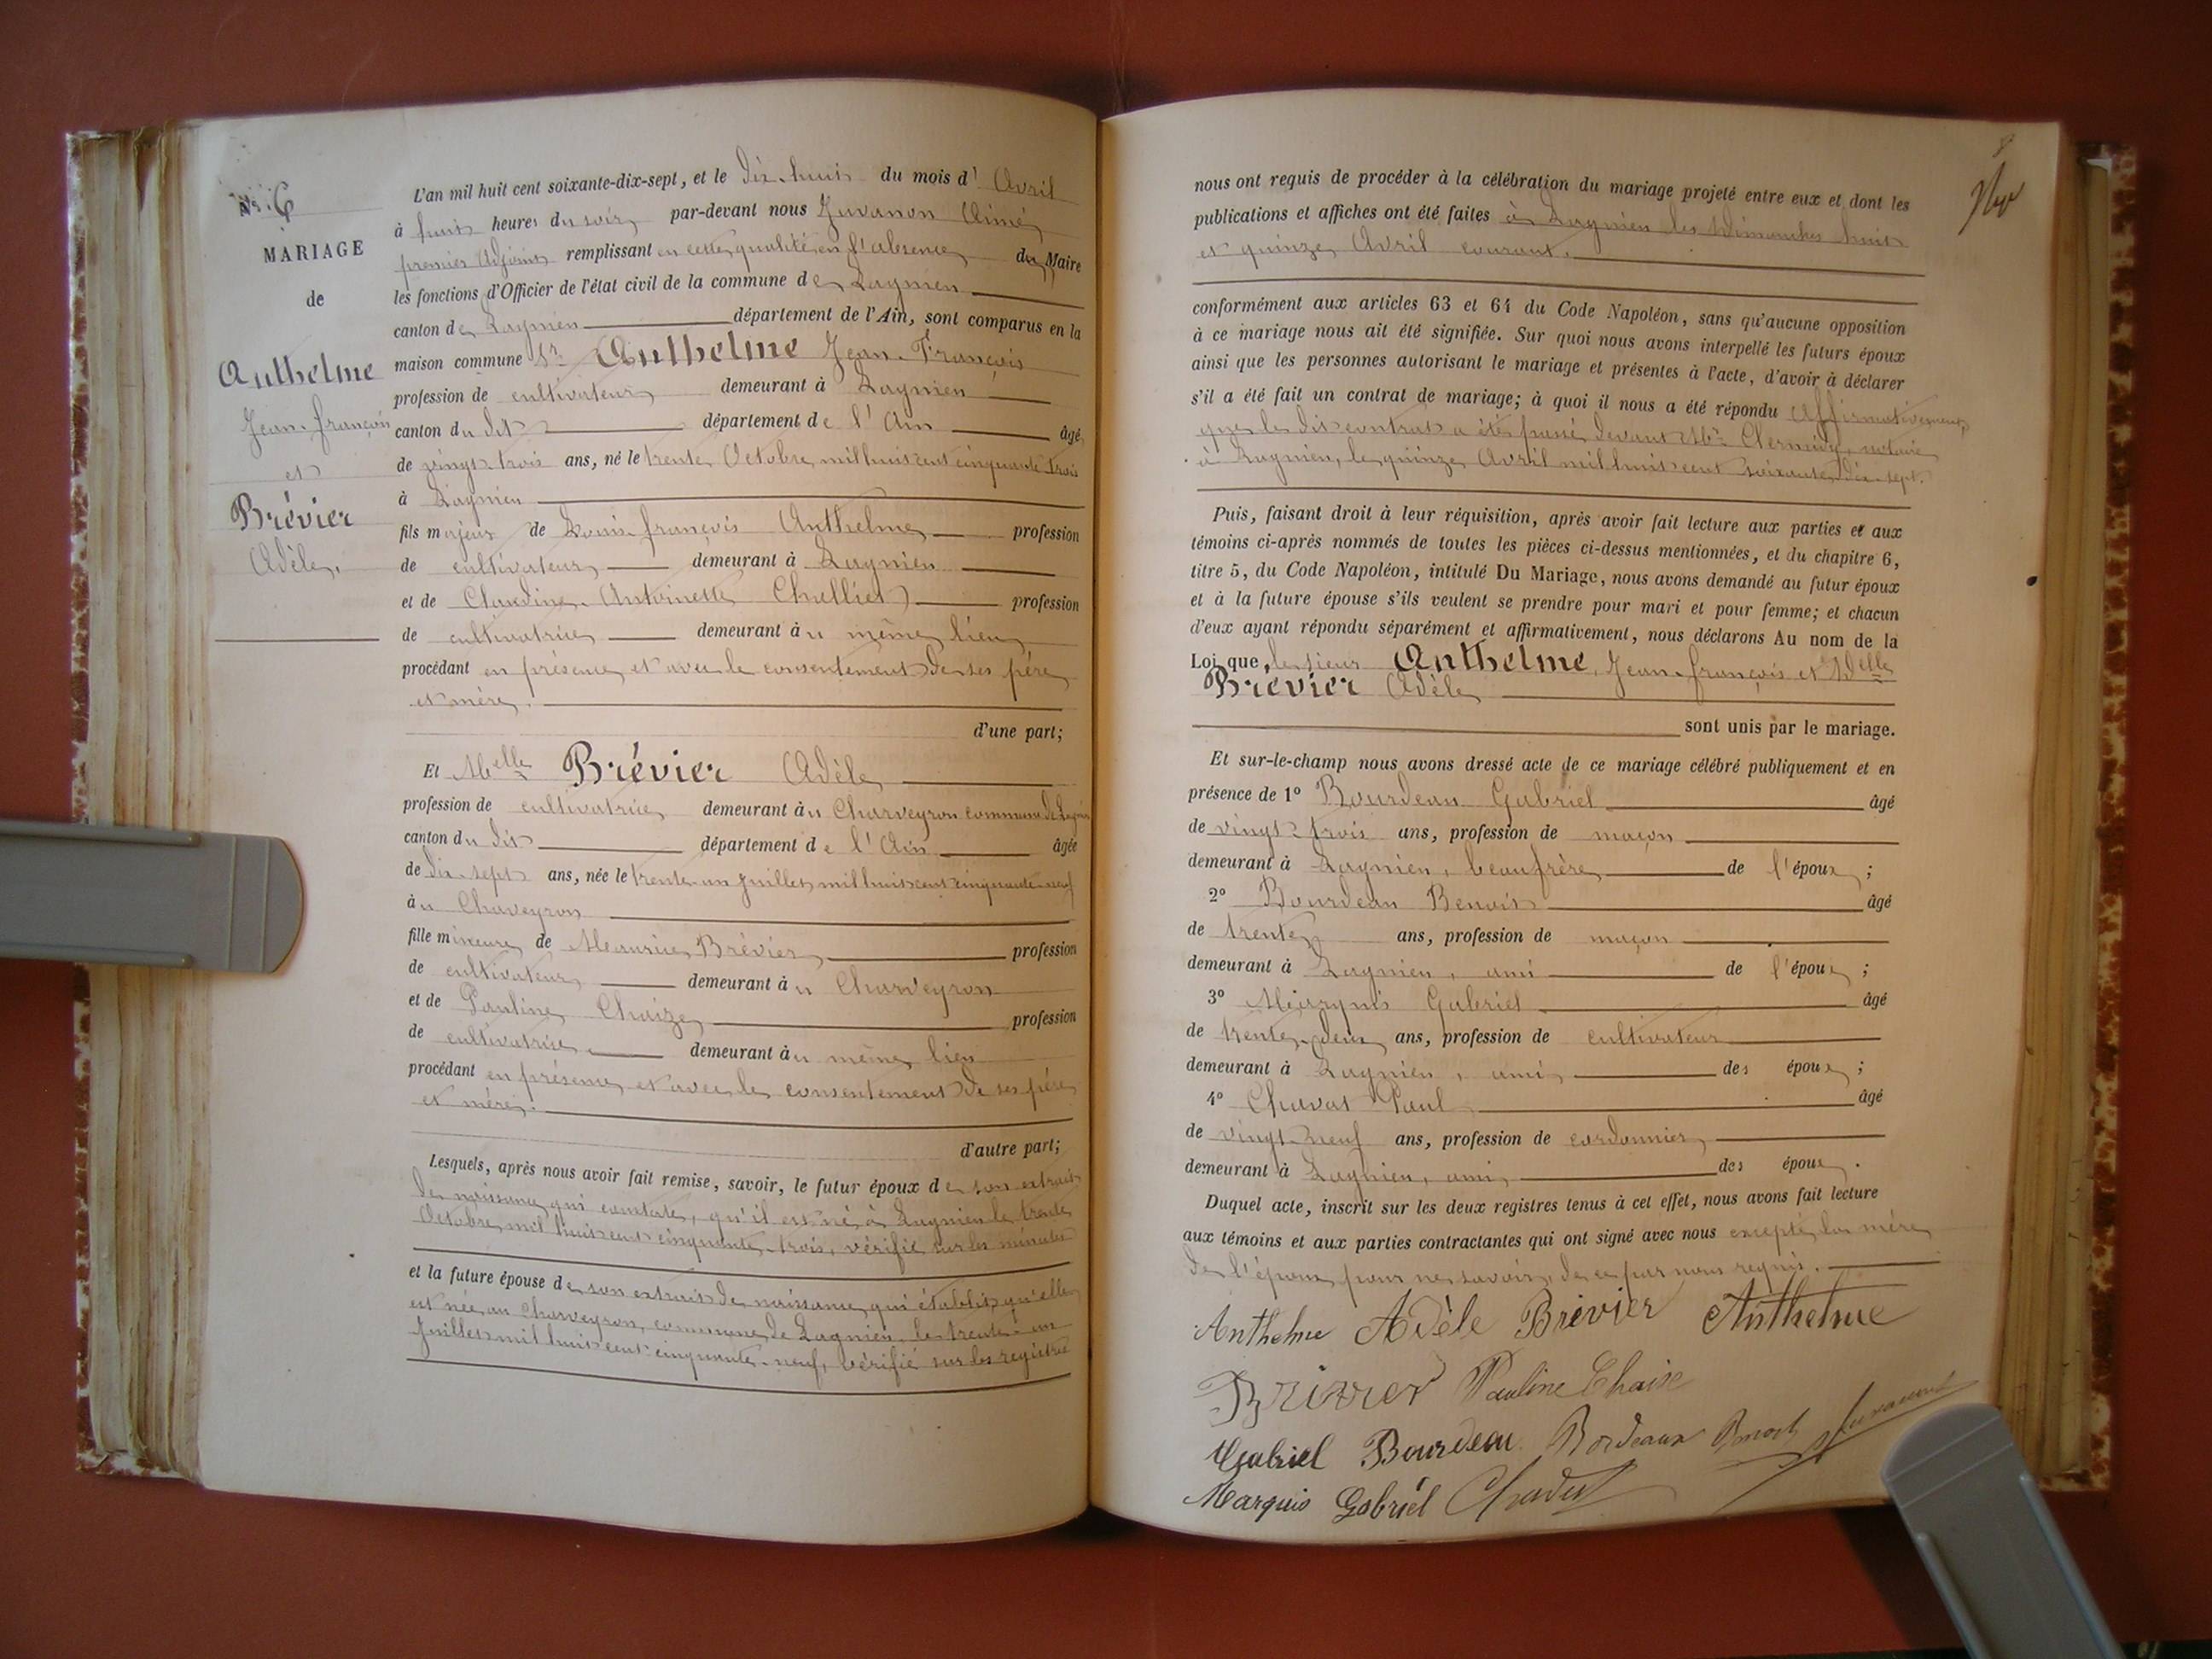 N° 6
MARIAGE
de
Anthelme
Jean-françois
et
Brévier
Adèle.
L'an mil huit cent soixante-dix-sept, et le dix-huit du mois d'Avril
à huit heures du soir, par-devant nous Juvanon Aimé
premier Adjoint remplissant en cette qualité, en l'absence du Maire
les fonctions d'Officier de l'état civil de la commune de Lagnieu
canton de Lagnieu département de l'Ain, sont comparus en la
maison commune Sr. Anthelme Jean-François
profession de cultivateur demeurant à Lagnieu
canton du dit département de l'Ain âgé
de vingt-trois ans, né le trente Octobre mil huit cent cinquante-trois
à Lagnieu
fils majeur de Louis-françois Anthelme profession
de cultivateur demeurant à Lagnieu
et de Claudine-Antoinette Challiet profession
de cultivatrice demeurant au même lieu
procédant en présence et avec le consentement de ses père
et mère.
d'une part;
Et Melle Brévier Adèle
profession de cultivatrice demeurant au Charveyron commune de Lagnieu
canton du dit département de l'Ain âgée
de dix-sept ans, née le trente-un Juillet mil huit cent cinquante-neuf
au Charveyron
fille mineure de Maurice Brévier profession
de cultivateur demeurant au Charveyron
et de Pauline Chaize profession
de cultivatrice demeurant au même lieu
procédant en présence et avec le consentement de ses père
et mère.
d'autre part;
Lesquels, après nous avoir fait remise, savoir, le futur époux de son extrait
de naissance qui constate, qu'il est né à Lagnieu le trente
Octobre mil huit cent cinquante-trois, vérifié sur les minutes
et la future épouse de son extrait de naissance qui établit qu'elle
est née au Charveyron, commune de Lagnieu le trente-un
Juillet mil huit cent cinquante-neuf, vérifié sur les registres
nous ont requis de procéder à la célébration du mariage projeté entre eux et dont les
publications et affiches ont été faites à Lagnieu les Dimanches huit
et quinze Avril courant.
conformément aux articles 63 et 64 du Code Napoléon, sans qu'aucune opposition
à ce mariage nous ait été signifiée. Sur quoi nous avons interpellé les futurs époux
ainsi que les personnes autorisant le mariage et présentes à l'acte, d'avoir à déclarer
s'il a été fait un contrat de mariage; à quoi il nous a été répondu affirmativement,
que le dit contrat a été passé devant Me Clermidy, notaire
à Lagnieu, le quinze Avril mil huit cent soixante-dix-sept.
Puis, faisant droit à leur réquisition, après avoir fait lecture aux parties et aux
témoins ci-après nommés de toutes les pièces ci-dessus mentionnées, et du chapitre 6,
titre 5, du Code Napoléon, intitulé Du Mariage, nous avons demandé au futur époux
et à la future épouse s'ils veulent se prendre pour mari et pour femme; et chacun
d'eux ayant répondu séparément et affirmativement, nous déclarons Au nom de la
Loi que, le sieur Anthelme, Jean-françois et Delle
Brévier Adèle
sont unis par le mariage.
Et sur-le-champ nous avons dressé acte de ce mariage célébré publiquement et en
présence de 1° Bourdeau Gabriel âgé
de vingt-trois ans, profession de maçon
demeurant à Lagnieu, beaufrère de l'époux ;
2° Bourdeau Benoit âgé
de trente ans, profession de maçon
demeurant à Lagnieu, ami de l'époux ;
3° Marquis Gabriel âgé
de trente-deux ans, profession de cultivateur
demeurant à Lagnieu, ami, des époux ;
4° Chavat Paul âgé
de vingt-neuf ans, profession de cordonnier,
demeurant à Lagnieu, ami, des époux .
Duquel acte, inscrit sur les deux registres tenus à cet effet, nous avons fait lecture
aux témoins et aux parties contractantes qui ont signé avec nous excepté la mère
de l'époux pour ne savoir, de ce par nous requis.
Anthelme Adèle Brévier Anthelme
Pauline Chaise
Gabriel Bourdeau Bordeaux Benoit Juvanon
Marquis Gabriel Chavat